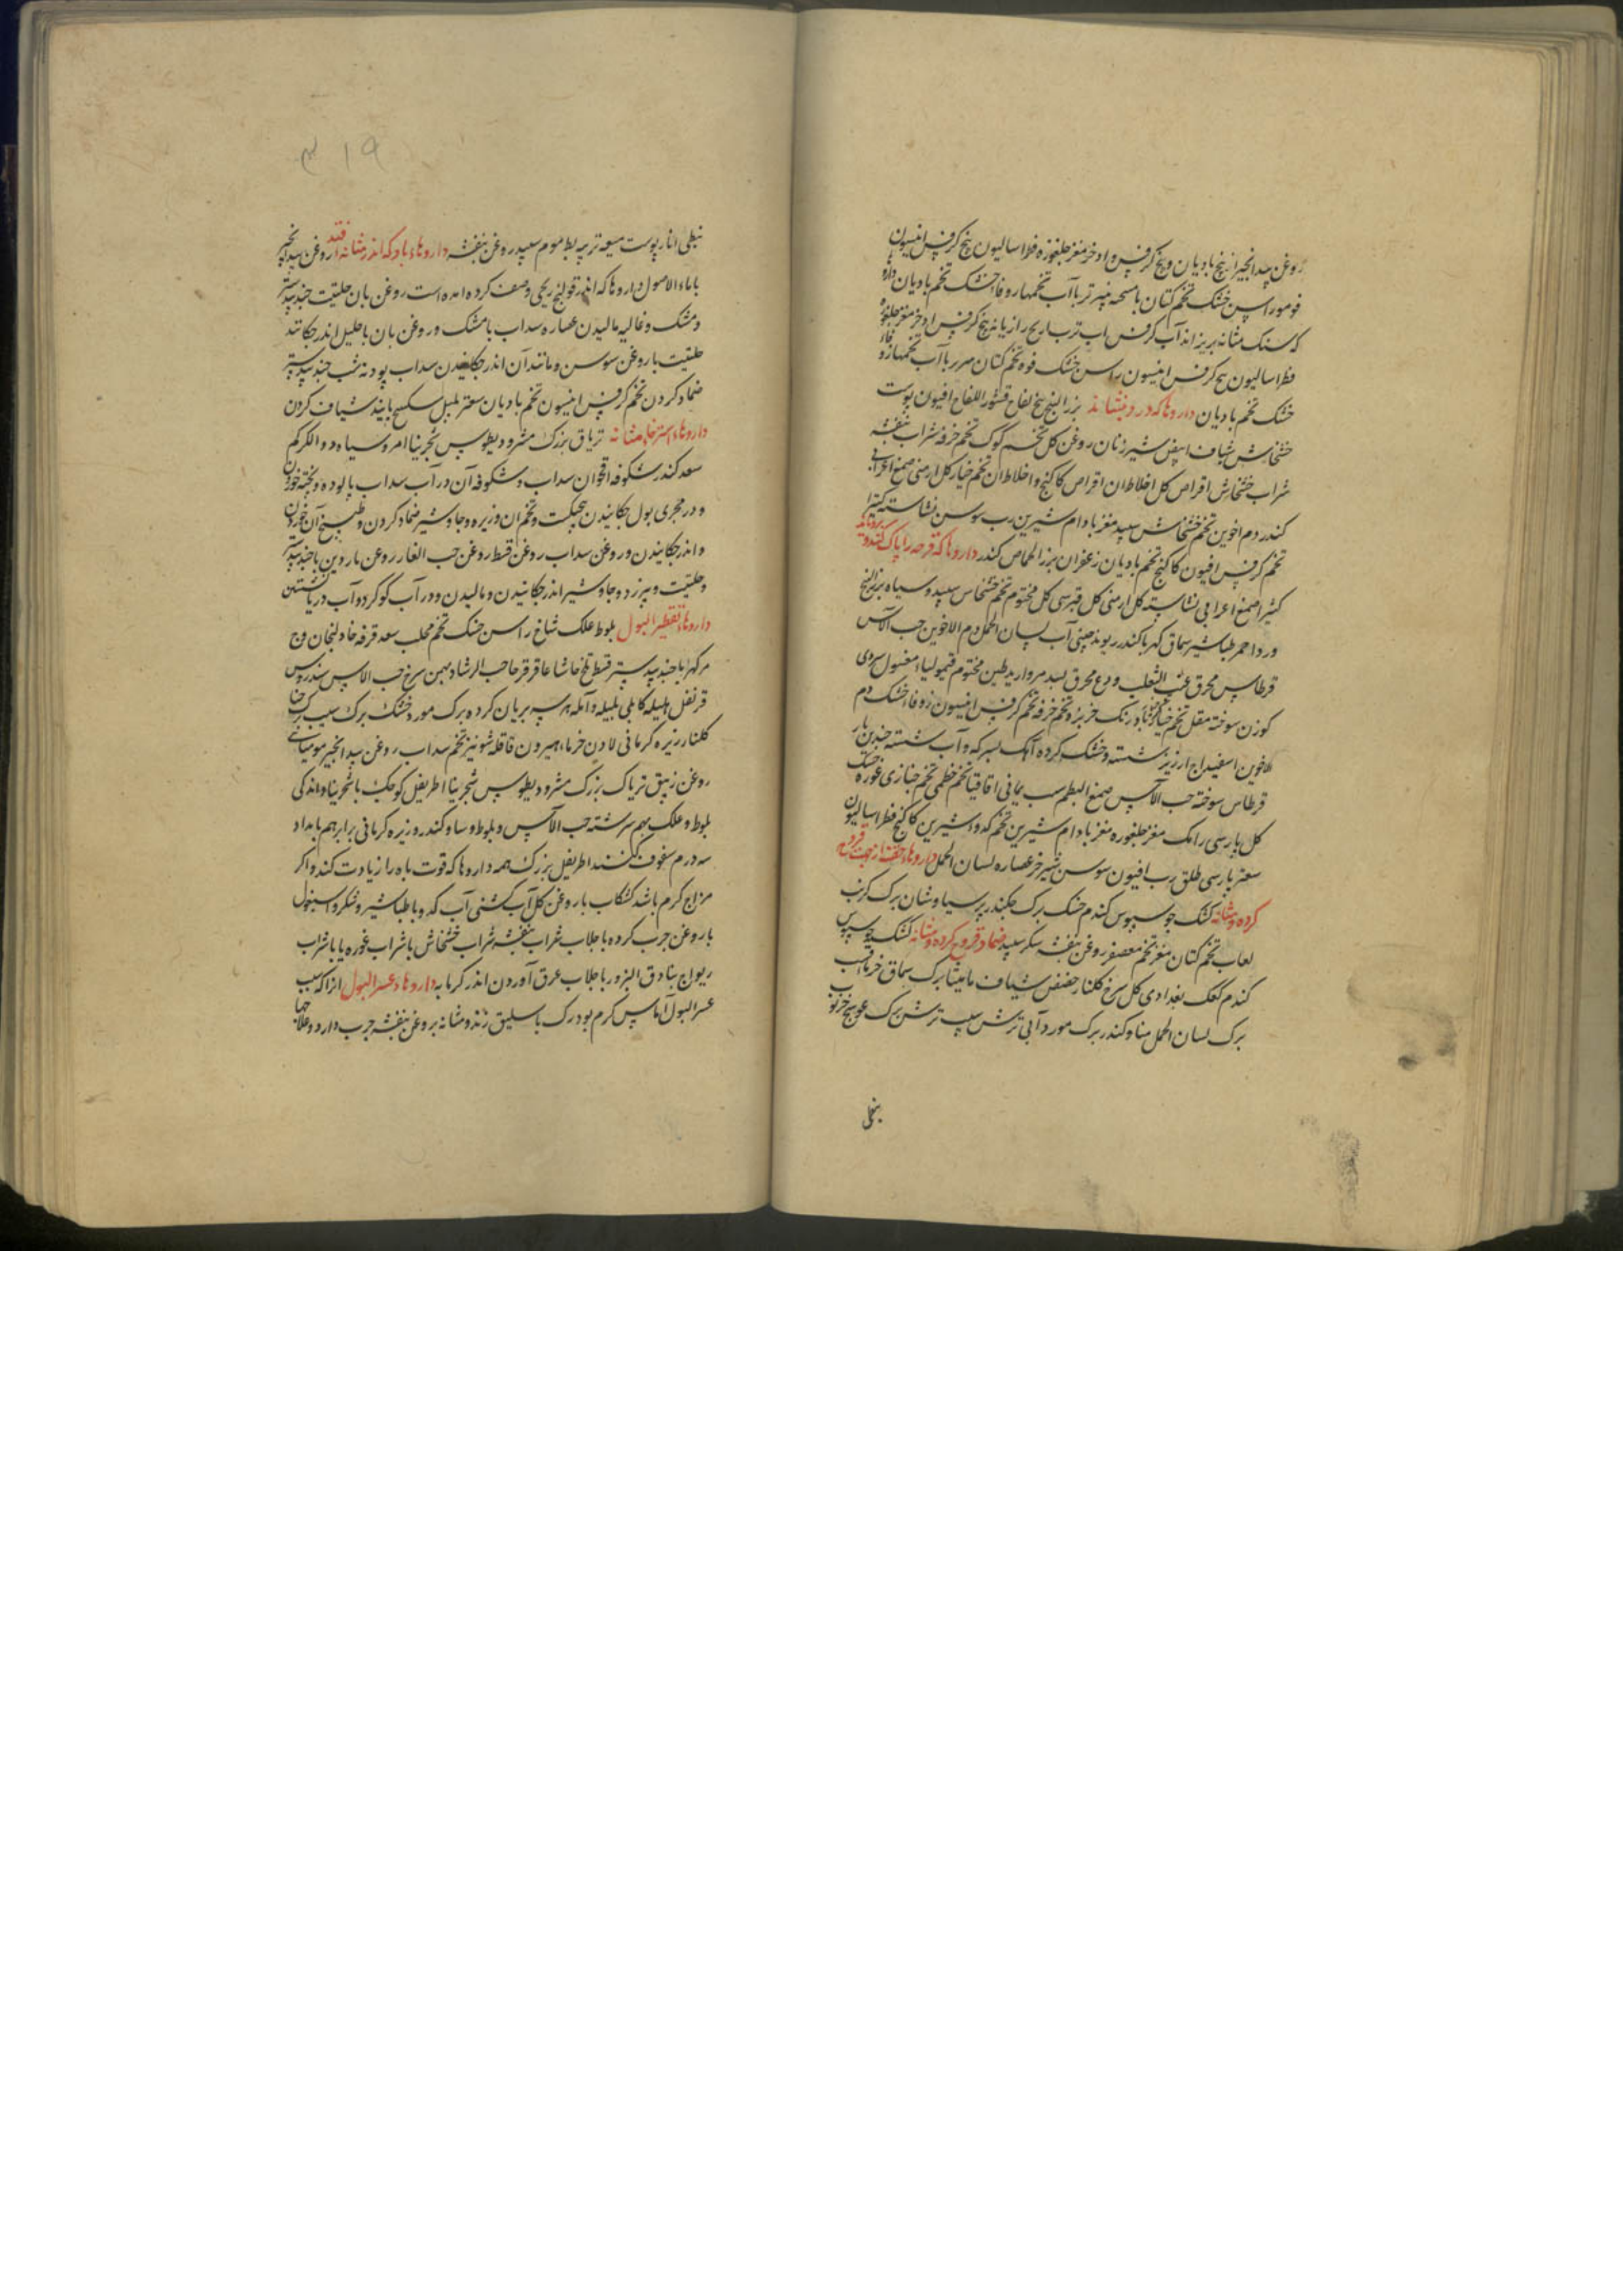 روغن بیدانجیر از بیخ بادیان و بیخ کرفس و اذخر مغز جلغوزه فطراسالیون بیخ کرفس انیسون
فو مو راسن خشک تخم کتان با سحه پنیر تر با آب تخمها زوفا خشک تخم بادیان دارو
که سنک مثانه بریزاند آب کرفس آب ترب رازیانه بیخ کرفس اذخر مغز جلغوزه
فطراسالیون بیخ کرفس انیسون راسن خشک فوه تخم کتان با آب تخمها زوفاء
خشک تخم بادیان داروها که درد بنشاند بزر البنج بیخ لفاح قشور اللفاح افیون پوست
خشخاش شیاف ابیض شیر زنان روغن کل تخم کوک تخم خرفه شراب بنفشه
شراب خشخاش اقراص کل اخلاط ان اقراص کاکنج و اخلاط ان تخم خیار کل ارمنی صمغ اعرابی
کندر دم اخوین تخم خشخاش سپید مغز بادام شیرین رب سوس نشاسته کتیرا
تخم کرفس افیون کاکنج تخم بادیان زعفران بزر الحماض کندر داروها که قرحه را پاک کند و برویاند
کتیرا صمغ اعرابی نشاسته کل ارمنی کل قبرسی کل مختوم تخم خشخاش سپید و سیاه بزر البنج
ورد احمر طباشیر سماق کهربا کندر ریوند چینی آب لسان الحمل دم الاخوین حب الآس
قرطاس محرق عنب الثعلب ودع محرق بسد مروارید طین مختوم قیمولیا مغسول سروی
کوزن سوخته مقل تخم خیار بادرنک خربزه و تخم خرفه تخم کرفس انیسون زوفا خشک دم
الاخوین اسفیداج ارزیز شسته و خشک کرده آهک بسرکه و آب شسته چندین بار
قرطاس سوخته حب الآس صمغ البطم شب یمانی اقاقیا تخم خطمی تخم خبازی غوره خشک
کل پارسی رامک مغز جلغوزه مغز بادام شیرین تخم کدو شیرین کاکنج فطراسالیون
سعتر پارسی طلق رب افیون سوسن شیر خر عصاره لسان الحمل داروهاء حقنه از جهت قروح
کرده و مثانه کشک جو سپوس کندم خسک برک چکندر پرسیاوشان برک کرنب
لعاب تخم کتان مغز تخم معصفر روغن بنفشه سکر سپید ضماد قروح کرده و مثانه کشک جو سپوس
کندم کعک بغدادی کل سرخ کلنار حضض شیاف مامیثا برک سماق خرما قسب
برک لسان الحمل کندر برک مورد آبی ترش سیب ترش برک عوسج خرنوب
نبطی
۳۱۹
نبطی انار پوست میعه تر پیه بط موم سپید روغن بنفشه داروهاء باد که اندر مثانه افتد روغن بیدانجیر
با ماء الاصول داروها که اندر قولنج ریحی وصف کرده امده است روغن بان حلتیت جندبیدستر
و مشک و غالیه مالیدن عصاره سداب با مشک و روغن بان باحلیل اندر چکانند
حلتیت با روغن سوسن و مانند آن اندر چکانیدن سداب پودنه شب جندبیدستر
ضماد کردن تخم کرفس انیسون تخم بادیان سعتر سکبینج شیاف کردن
داروهاء استرخاء مثانه تریاق بزرک مثرودیطوس شجرینا امروسیا دواء الکرکم
سعد کندر شکوفه اقحوان سداب و شکوفه آن در آب سداب پالوده و پخته خوردن
و در مجری بول چکانیدن پنجنکشت و تخم ان و زیره و جاوشیر ضماد کردن و طبیخ آن خوردن
و اندر چکانیدن و روغن سداب روغن قسط روغن حب الغار روغن ناردین با جندبیدستر
و حلتیت و بیرزد و جاوشیر اندر چکانیدن و مالیدن و در آب کوکرد و آب دریا نشستن
داروهاء تقطیر البول بلوط علک شاخ راسن خشک تخم محلب سعد قرفه خاولنجان وج
مر کهربا جندبیدستر قسط تلخ حاشا عاقرقرحا حب الرشاد بهمن سرخ حب الاس سندروس
قرنفل هلیله کابلی بلیله و آمله هر سه بریان کرده برک مورد خشک برک سیب برک حنا
کلنار زیره کرمانی لادن خرما هیرون قاقله شونیز تخم سداب روغن بیدانجیر مومیائی
روغن زنبق تریاک بزرک مثرودیطوس شجرینا اطریفل کوچک با شجرینا و اندکی
بلوط و علک بهم سرشته حب الآس و بلوط و کندر و زیره کرمانی برابر هم بامداد
سه درم سفوف کنند اطریفل بزرک همه داروها که قوت باه را زیادت کند و اکر
مزاج کرم باشد کشکاب با روغن کل آب کشنی آب کدو با طباشیر و شکر و اسبغول
با روغن چرب کرده با جلاب شراب بنفشه شراب خشخاش با شراب غوره یا با شراب
ریواج بنادق البزور با جلاب عرق آوردن اندر کرمابه داروهاء عسر البول از آنکه سبب
عسر البول آماس کرم بود رک باسلیق زند و مثانه بروغن بنفشه چرب دارد و علاجها